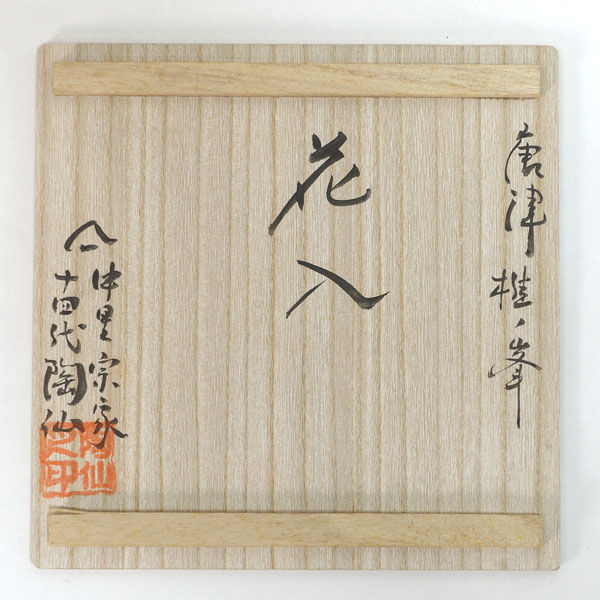 唐津椎ノ峯
花入
中里宗家
十四代陶仙
陶仙
之印